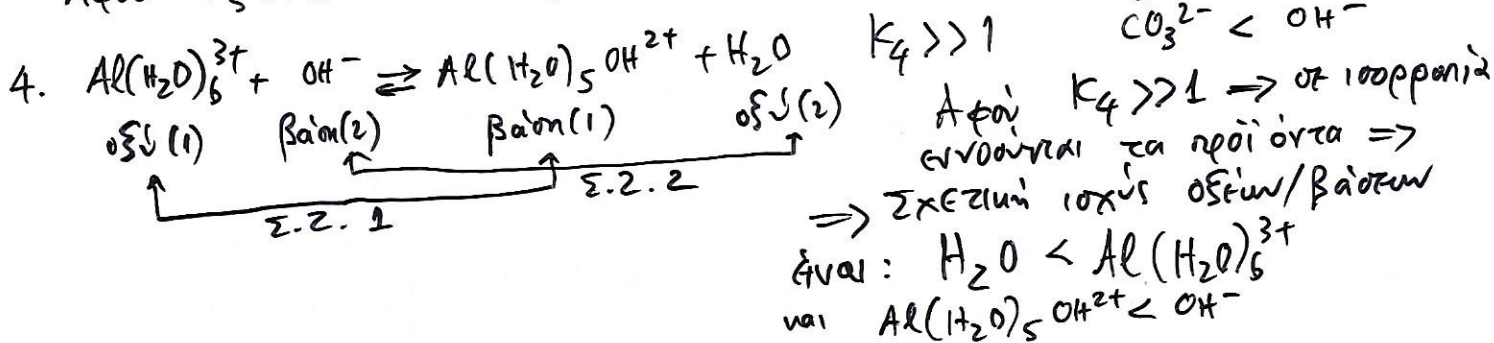 4. Al(H₂O)₆³⁺ + OH⁻ ⇌ Al(H₂O)₅OH²⁺ + H₂O K₄>>1 CO₃²⁻ < OH⁻
οξύ (1) βάση(2) βάση(1) οξύ(2)
Σ.Ζ. 2
Σ.Ζ. 1
Αφού K₄>>1 => σε ισορροπία
ευνοούνται τα προϊόντα =>
=> Σχετική ισχύς οξέων/βάσεων
είναι: H₂O < Al(H₂O)₆³⁺
και Al(H₂O)₅OH²⁺ < OH⁻